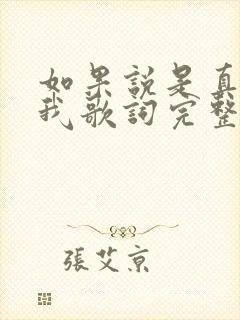 如果說是真
我歌詞完整
張艾京